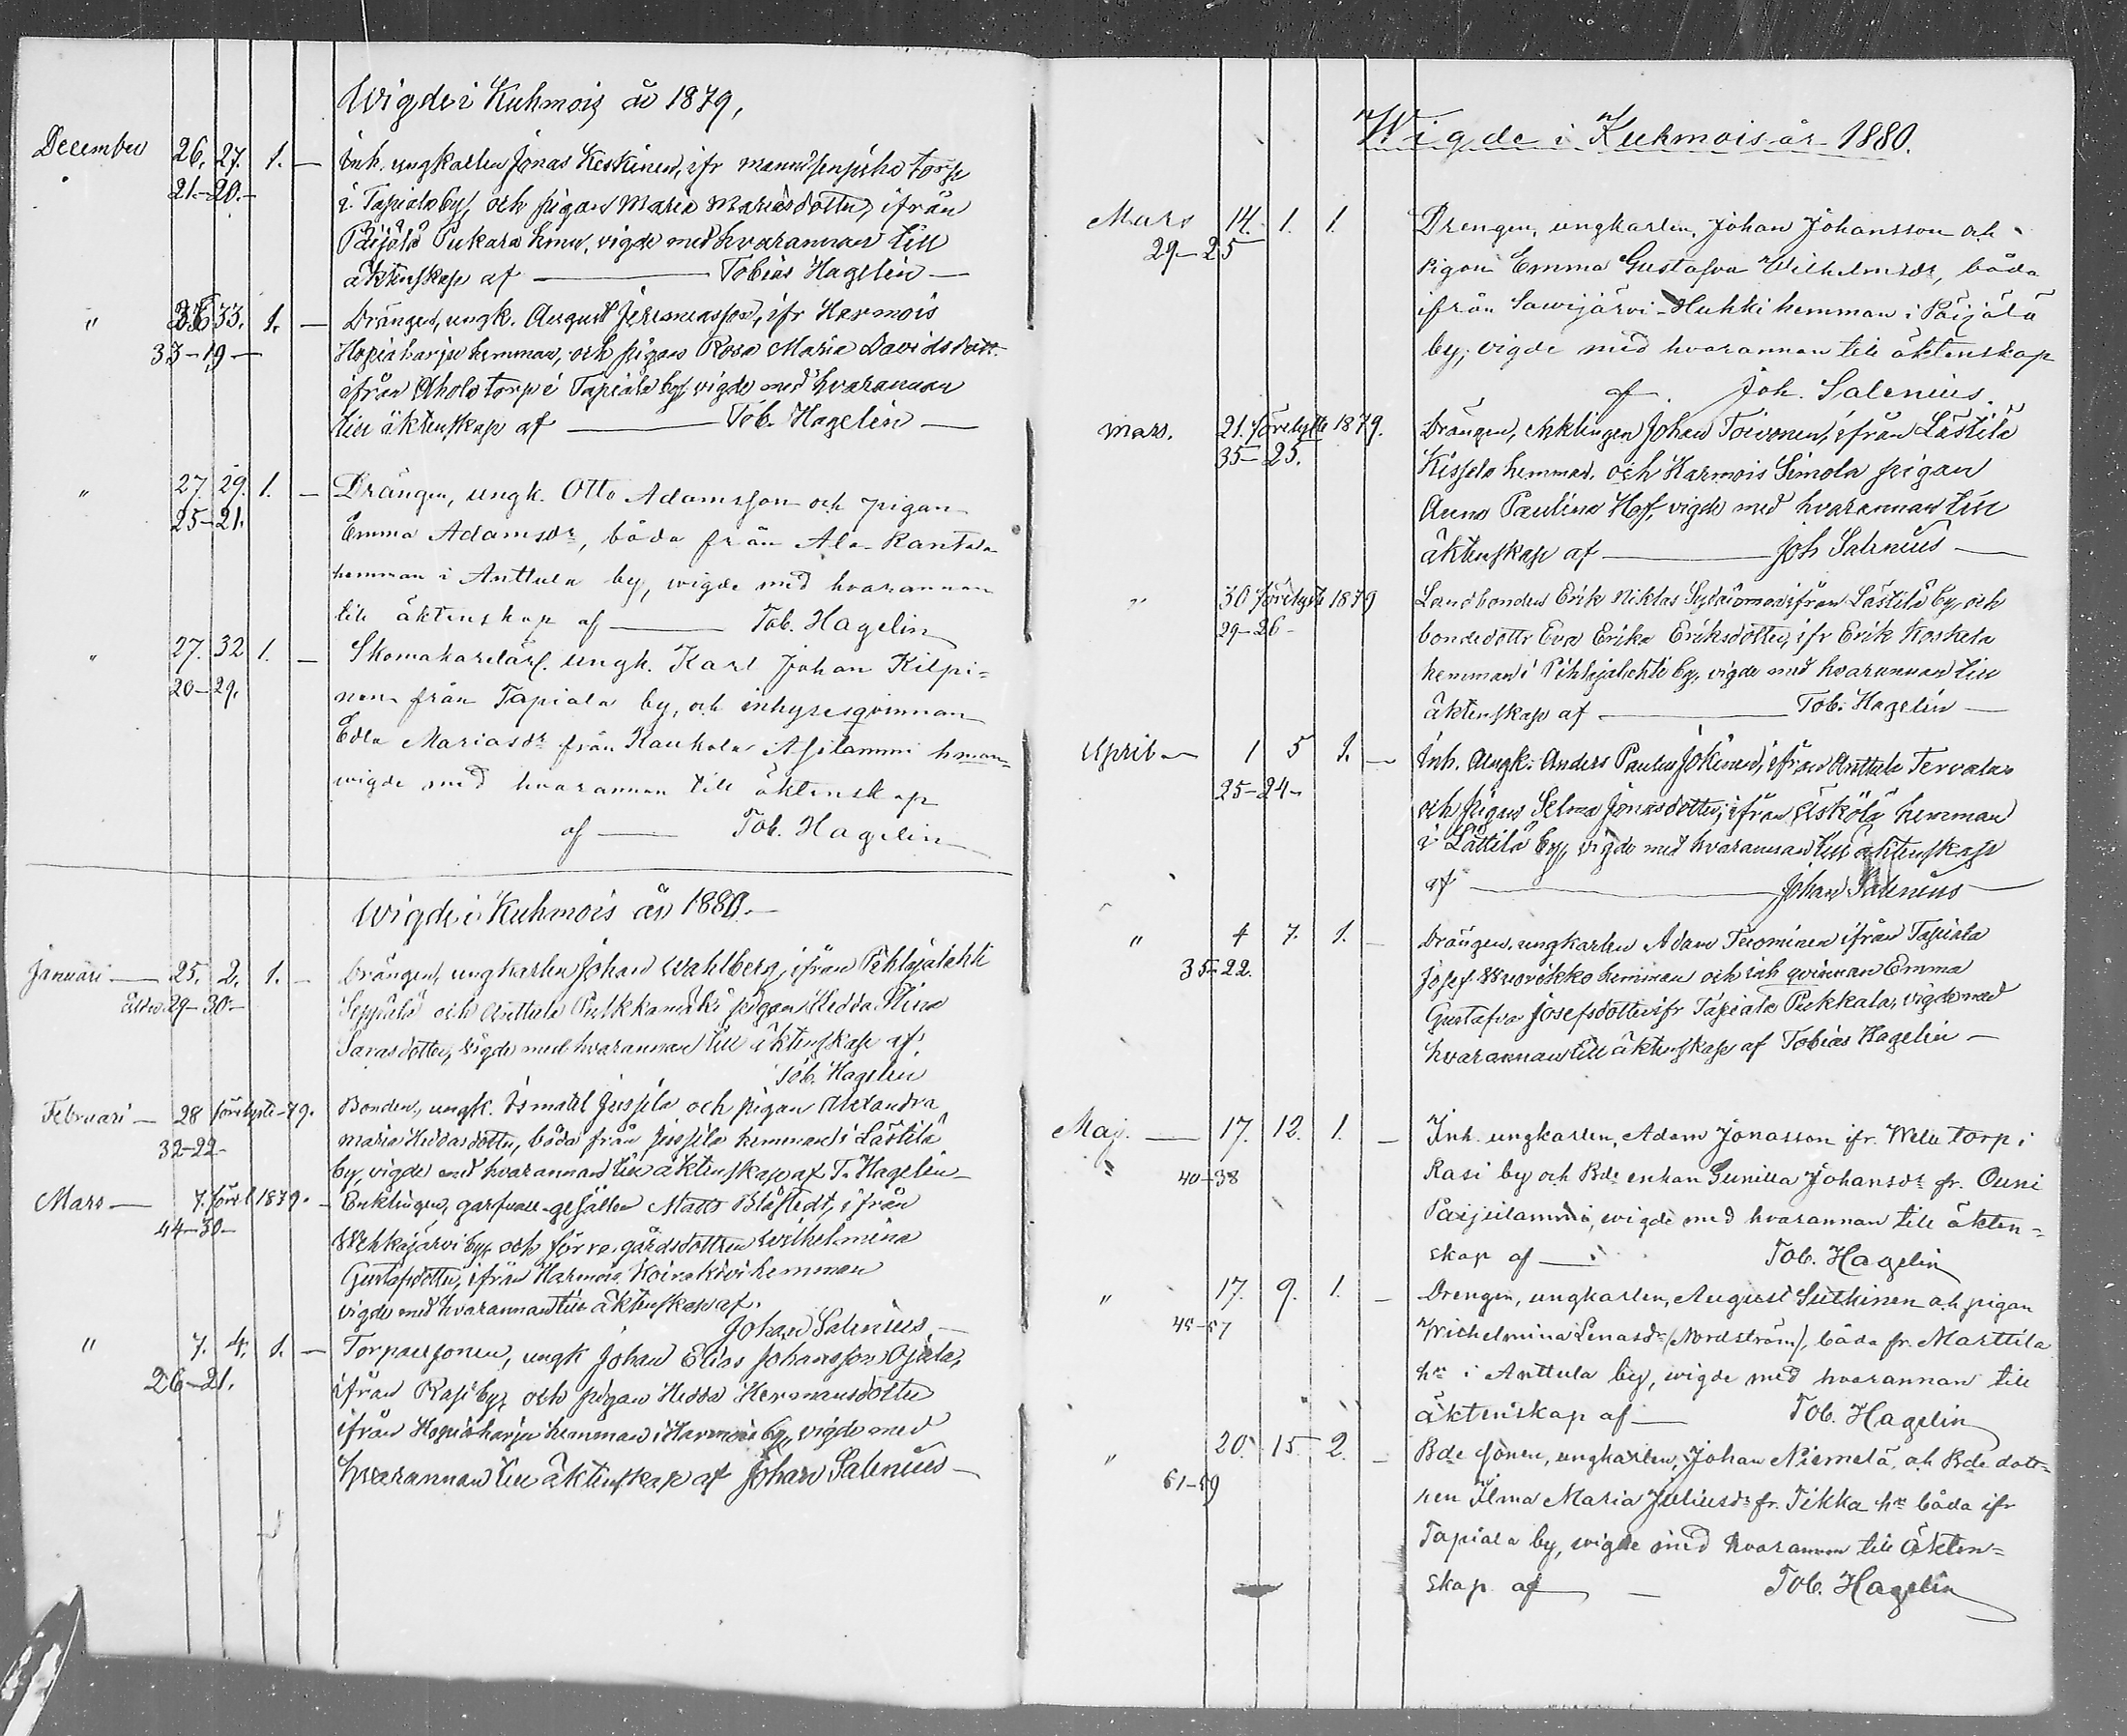 Wigde i Kuhmois år 1879,
December 26. 27. 1. — Inh. ungkarlen Jonas Keskinen, ifr torp
21–20.– i Tapiala by, och pigan Maria Mariasdotter, ifrån
Päijälä Pukara hmn, vigde med hvarannan till
äktenskap af — Tobias Hagelin —
" 26 33. 1. — Drängen, ungk. August Jeremiasson, ifr Harmois
33–19 — Hopiaharju hemman, och pigan Rosa Maria Davidsdott.
ifrån Ahola torp i Tapiala by, vigde med hvarannan
till äktenskap af — Tob. Hagelin —
" 27. 29. 1. — Drängen, ungk. Otto Adamsson och pigan
25–21. Emma Adamsdr, båda från Ala-Rantala
hemman i Anttula by, wigde med hvarannan
till äktenskap af — Tob. Hagelin
" 27. 32 1. — Skomakarelärl. ungk. Karl Johan Kilpi=
20–29. nen från Tapiala by, och inhysesqvinnan
Edla Mariasdr från Kauhala Asilammi hman
wigde med hvarannan till äktenskap
af — Tob. Hagelin
Wigde i Kuhmois år 1880.—
Januari — 25. 2. 1. — Drängen, ungkarlen Johan Wahlberg, ifrån Pihlajalahti
ålder 29–30– Seppälä och Anttula Pulkkamäki pigan Hedda Stina
Sarasdotter, vigde med hvarannan till äktenskap af
Tob. Hagelin
Februari — 28 förelyste –79. Bonden, ungk. Ismael Jussila och pigan Alexandra
32–22– Maria Heddasdotter, båda från Jussila hemman i Lästilä
by, vigde med hvarannan till äktenskap af T. Hagelin —
Mars — 7. förel 1879. — Enklingen, garfvare-gesällen Matts Blåfiedt, ifrån
44–30– Wehkajärvi by, och förra gårdsdottren Wilhelmina
Gustafsdotter, ifrån Harmois Koirakivi hemman
vigde med hvarannan till äktenskap af.
Johan Salenius —
" 7. 4. 1. — Torparesonen, ungk Johan Elias Johansson Ojala,
26–21. ifrån Rasi by, och pigan Hedda Hermansdotter
ifrån Hopiaharju hemman i Harmois by, vigde med
hvarannan till äktenskap af Johan Salenius —
Wigde i Kuhmois år 1880.
Mars 14. 1. 1. Drengen, ungkarlen, Johan Johansson och
29–25 Pigan Emma Gustafva Wilhelmsdr, båda
ifrån Sawijärvi-Huhki hemman i Päijälä
by; vigde med hvarannan till äktenskap
af. Joh. Salenius.
Mars. 21. förelyste 1879. Drängen, enklingen Johan Toivonen, ifrån Lästilä
35–25. Kissala hemman, och Harmois Simola pigan
Anna Paulina Hoff, vigde med hvarannan till
äktenskap af — Joh Salenius —
" 30 förelyste 1879 Landbonden Erik Niklas Sydänmaa ifrån Lästilä by och
29–26– bondedottr Eva Erika Eriksdotter, ifr Erik Koskela
hemman i Pihlajalahti by, vigde med hvarannan till
äktenskap af — Tob. Hagelin —
April — 1 5 1. — Inh. Ungk. Anders Paulus Jokinen, ifrån Anttula Tervala
25–24– och pigan Selma Jonasdotter, ifrån Eskölä hemman
i Lästilä by, vigde med hvarannan till äktenskap
af — Johan Salenius —
" 4 7. 1. — Drängen, ungkarlen Adam Tuominen ifrån Tapiala
35–22. Josef Wuorikko hemman och inh qvinnan Emma
Gustafva Josefsdotter ifr Tapiala Pukkala, vigde med
hvarannan till äktenskap af Tobias Hagelin —
Maj. — 17. 12. 1. — Inh. ungkarlen, Adam Jonasson ifr. Wela torp i
" 40–38 Rasi by och Bde enkan Gunilla Johansdr fr. Ouni
Paijulammi, wigde med hvarannan till äkten=
skap af — Tob. Hagelin
" 17. 9. 1. — Drengen, ungkarlen, August Suthinen och pigan
Wilhelmina Lenasdr (Nordström), båda fr. Marttila
hn i Anttula by, wigde med hvarannan till
äktenskap af — Tob. Hagelin
" 20. 15. 2. — Bde sonen, ungkarlen, Johan Niemelä, och Bde dott=
ren Ilma Maria Juliusdr fr. Tikka hn båda ifr
Tapiala by, wigde med hvarannan till äkten=
skap af — Tob. Hagelin